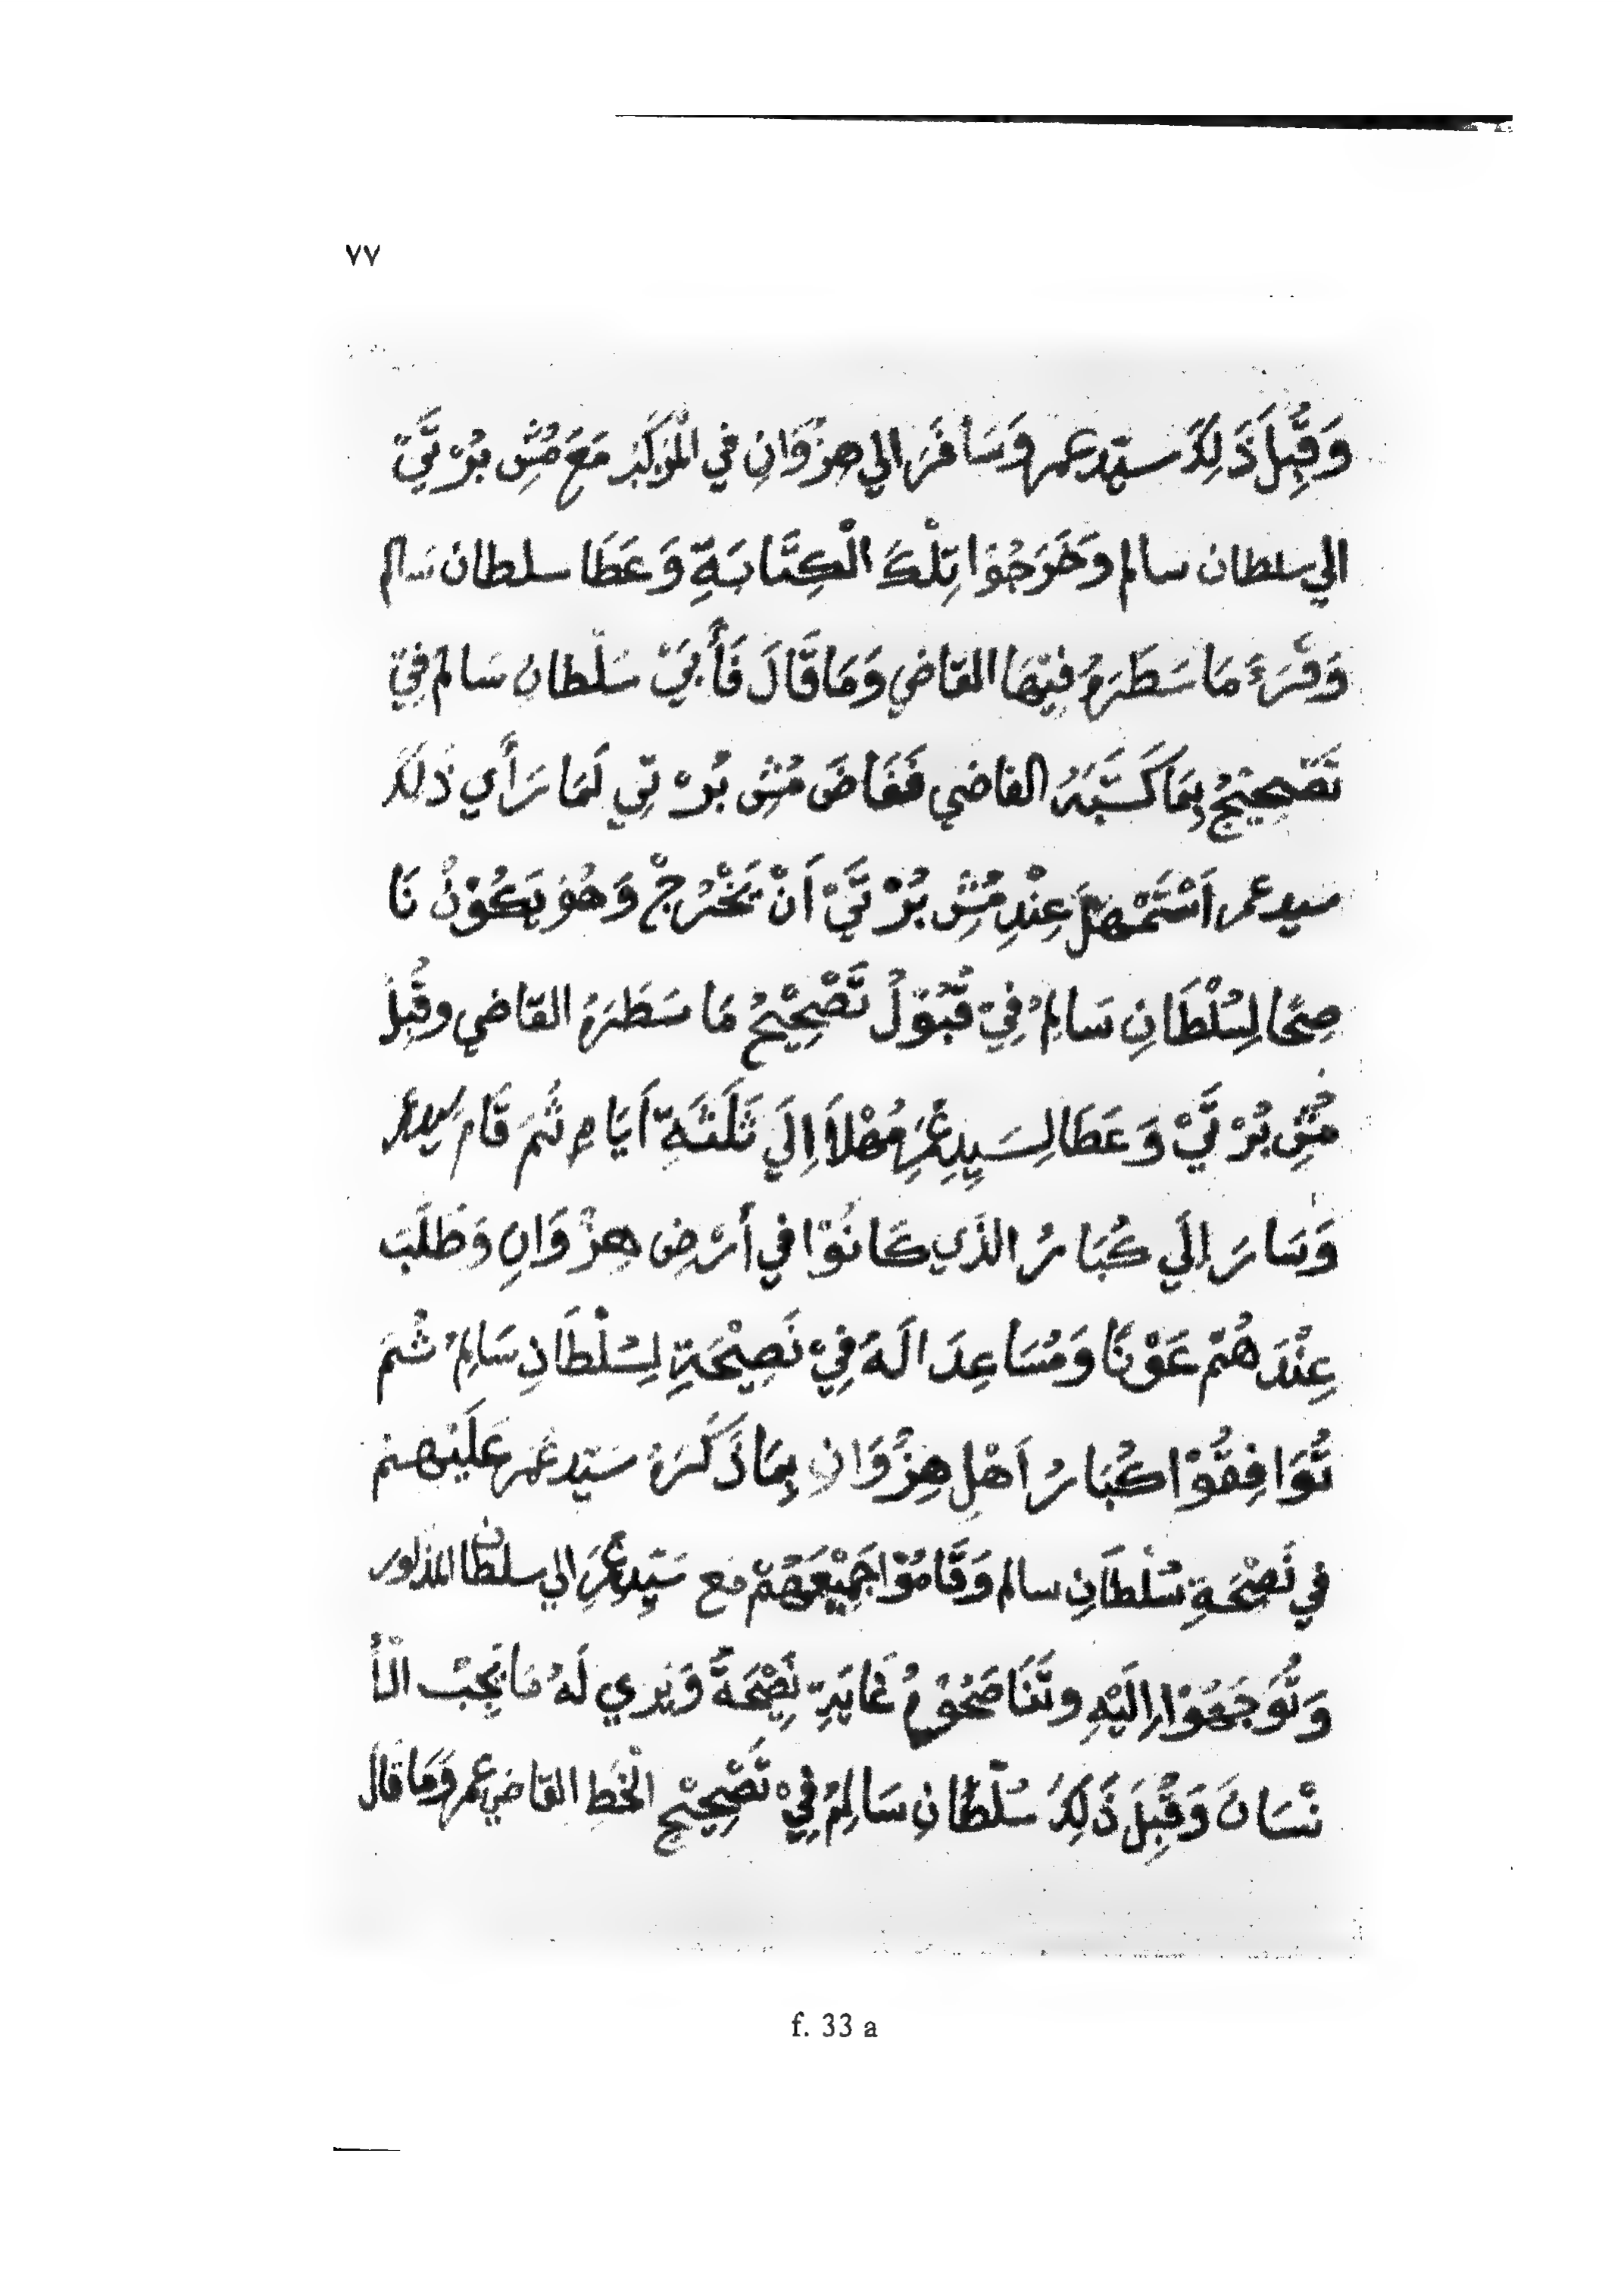 ٧٧
وَقَبِلَ ذَلِكَ سيّد عمر وَسَافَرَ الي هِزْوَانِ في الْمَرْكَبِ مَعَ مُسْ بُرْتَيْ
الي سلطان سالم وَخَرَجُوْا تِلْكَ الْكِتَابَةِ وَعَطَا سلطان سالم
وَقْرَءَ مَا سَطَرَهُ فِيْهَا القاضي وَمَا قَالَ فَأَبَيْ سَلْطان سَالمُ فِيْ
تَصْحِيْحُ بِمَا كَتَبَهُ القاضي فَغَاضَ مُسْ بُرْتِي لَمَا رَأَي ذَلِكَ
سيد عمر اَسْتَمْهَلَ عِنْدِ مُسْ بُرْتَيْ اَنْ يَخْرُجْ وَهُوْ يَكُوْنُ نَا
صِحًا لِسُلْطَانِ سَالِمُ فِيْ قُبُوْلُ تَصْحِيْحُ مَا سَطَرَهُ القاضي وقَبِلَ
مُسْ بُرْتَيْ وَعَطَا لِسَيِدِ عُمَرِ مُهْلاً اِلَي ثَلَثَةِ اَيَام ثُمَ قَام سيد عمر
وَسَارَ اِلَي كُبَارُ الذَي كَانُوْا في أَرْضِ هِزْوَانِ وَطَلَبَ
عِنْدَهُمْ عَوْنًا وَمُسَاعِدَا لَهُ فِيْ نَصِيْحَةِ لِسُلْطَانِ سَالِمُ ثُمَ
تُوَافِقُوْا كُبَارُ اَهْلِ هِزْوَانِ بِمَا ذَكَرَهُ سَيّد عُمَر عَلَيْهِمْ
في نَصْحَةِ سُلْطَانِ سالم وَقَامُوْا جَمِيْعَهُمْ مع سَيّدِ عُمَرَ الي سلطان المذكور
وَتُوَجَهُوْا اِلَيْهِ وتَنَاصَحُوْهُ غَايَةِ نَصْحَةً وَيَرِي لَهُ مَا يُحِبُ الْأ
نْسَانَ وَقَبِلَ ذَلِكَ سُلْطَانِ سَالِمُ فِيْ تَصْحِيْحِ الْخَطِ القاضي عمر وَمَا قَالَ
f. 33 a